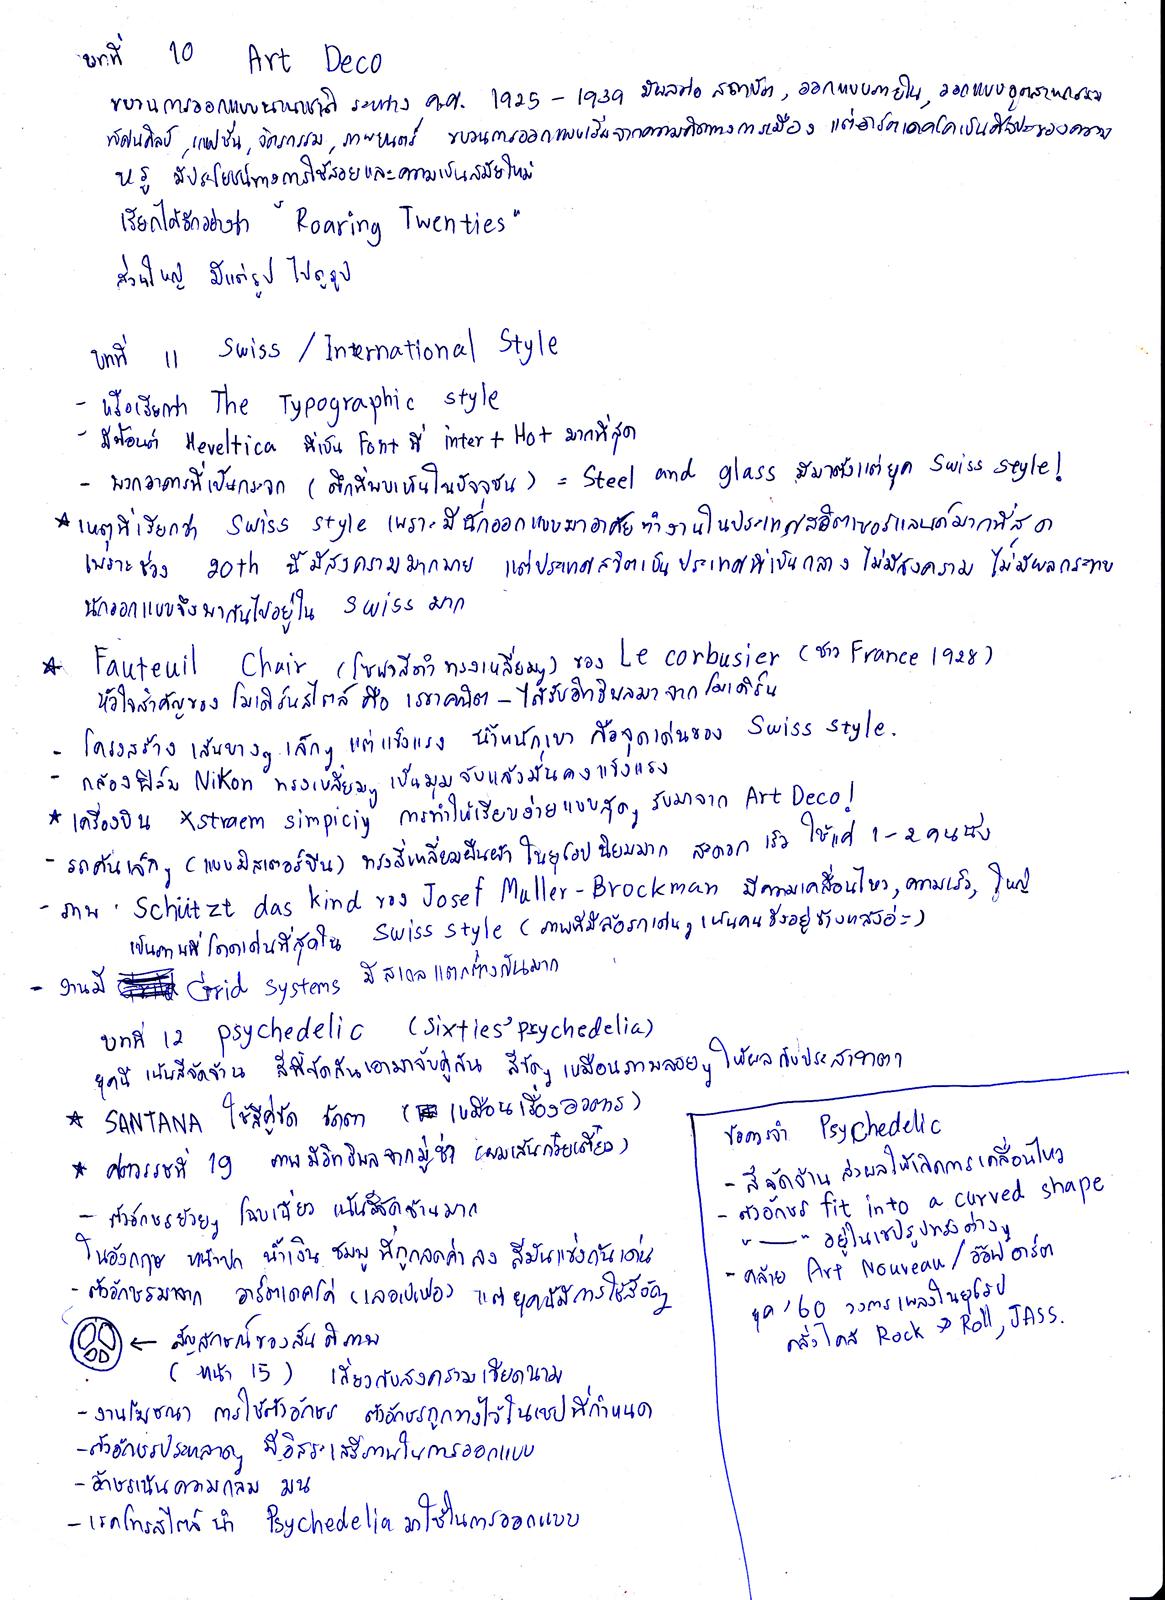 บทที่ 10 Art Deco
ขบวนการออกแบบนานาชาติ ระหว่าง ค.ศ. 1925 - 1939 มีผลต่อ สถาปัต, ออกแบบภายใน, ออกแบบอุตสาหกรรม
ทัศนศิลป์, แฟชั่น, จิตรกรรม, ภาพยนตร์ ขบวนการออกแบบเริ่มจากความคิดทางการเมือง แต่อาร์ตเดคโคเป็นศิลปะของความ
หรู มีประโยชน์ทางการใช้สอยและความเป็นสมัยใหม่
เรียกได้อีกอย่างว่า "Roaring Twenties"
ส่วนใหญ่ มีแต่รูป ไปดูรูป
บทที่ 11 Swiss / International Style
- หรือเรียกว่า The Typographic style
- มีฟ้อนต์ Heveltica ที่เป็น Font ที่ inter + Hot มากที่สุด
- พวกอาคารที่เป็นกระจก (ตึกที่พบเห็นในปัจจุบัน) = Steel and glass มีมาตั้งแต่ยุค Swiss style!
* เหตุที่เรียกว่า Swiss style เพราะมีนักออกแบบมาอาศัยทำงานในประเทศสวิตเซอร์แลนด์มากที่สุด
เพราะช่วง 20th นี้มีสงครามมากมาย แต่ประเทศสวิตเป็นประเทศที่เป็นกลาง ไม่มีสงคราม ไม่มีผลกระทบ
นักออกแบบจึงพากันไปอยู่ใน Swiss มาก
* Fauteuil Chair (โซฟาสีดำ ทรงเหลี่ยมๆ) ของ Le corbusier (ชาว France 1928)
หัวใจสำคัญของโมเดิร์นสไตล์ คือ เรขาคณิต - ได้รับอิทธิพลมาจากโมเดิร์น
- โครงสร้าง เส้นบางๆ เล็กๆ แต่แข็งแรง น้ำหนักเบา คือจุดเด่นของ Swiss style.
- กล้องฟิล์ม Nikon ทรงเหลี่ยมๆ เป็นมุม จับแล้วมั่นคงแข็งแรง
* เครื่องบิน Xstraem simpiciy การทำให้เรียบง่ายแบบสุดๆ รับมาจาก Art Deco!
- รถคันเล็กๆ (แบบมิสเตอร์บีน) ทรงสี่เหลี่ยมผืนผ้า ในยุโรปนิยมมาก สะดวก เร็ว ใช้แค่ 1-2 คนนั่ง
- ภาพ Schützt das kind ของ Josef Muller-Brockman มีความเคลื่อนไหว, ความเร็ว, ใหญ่
เป็นงานที่โดดเด่นที่สุดใน Swiss style (ภาพที่มีล้อรถเด่นๆ เห็นคนวิ่งอยู่ข้างหลังอ่ะ)
- งานมี Grid systems มีสเกลแตกต่างกันมาก
บทที่ 12 psychedelic (sixties' psychedelia)
ยุคนี้ เน้นสีจัดจ้าน สีที่ตัดกันเอามาจับคู่กัน สีชัดๆ เหมือนภาพลอยๆ ให้ผลกับประสาทตา
* SANTANA ใช้สีคู่ขัด ขัดตา (เหมือนเรื่องอวตาร)
* ศตวรรษที่ 19 ภาพมีอิทธิพลจากมู่ช่า (ผมเส้นก๋วยเตี๋ยว)
- ตัวอักษรย้วยๆ โฉบเฉี่ยว เน้นสีจัดจ้านมาก
ในอังกฤษ หน้าปก น้ำเงิน ชมพู ที่ถูกลดค่าลง สีมันแข่งกันเด่น
- ตัวอักษรมาจาก อาร์ตเดคโค่ (เลอเปเฟอ) แต่ยุคนี้มีการใช้สีจัดๆ
← สัญลักษณ์ของสันติภาพ
(หน้า 15) เกี่ยวกับสงครามเวียดนาม
- งานโฆษณา การใช้ตัวอักษร ตัวอักษรถูกวางไว้ในเชปที่กำหนด
- ตัวอักษรประหลาดๆ มีอิสระเสรีภาพในการออกแบบ
- อักษรเน้นความกลม มน
- เรคโทรสไตล์ นำ Psychedelia มาใช้ในการออกแบบ
ข้อควรจำ Psychedelic
- สีจัดจ้าน ส่งผลให้เกิดการเคลื่อนไหว
- ตัวอักษร fit into a curved shape
" —— " อยู่ในเชปรูปทรงต่างๆ
- คล้าย Art Nouveau / อ๊อฟอาร์ต
ยุค '60 วงการเพลงในยุโรป
คลั่งไคล้ Rock & Roll, JASS.